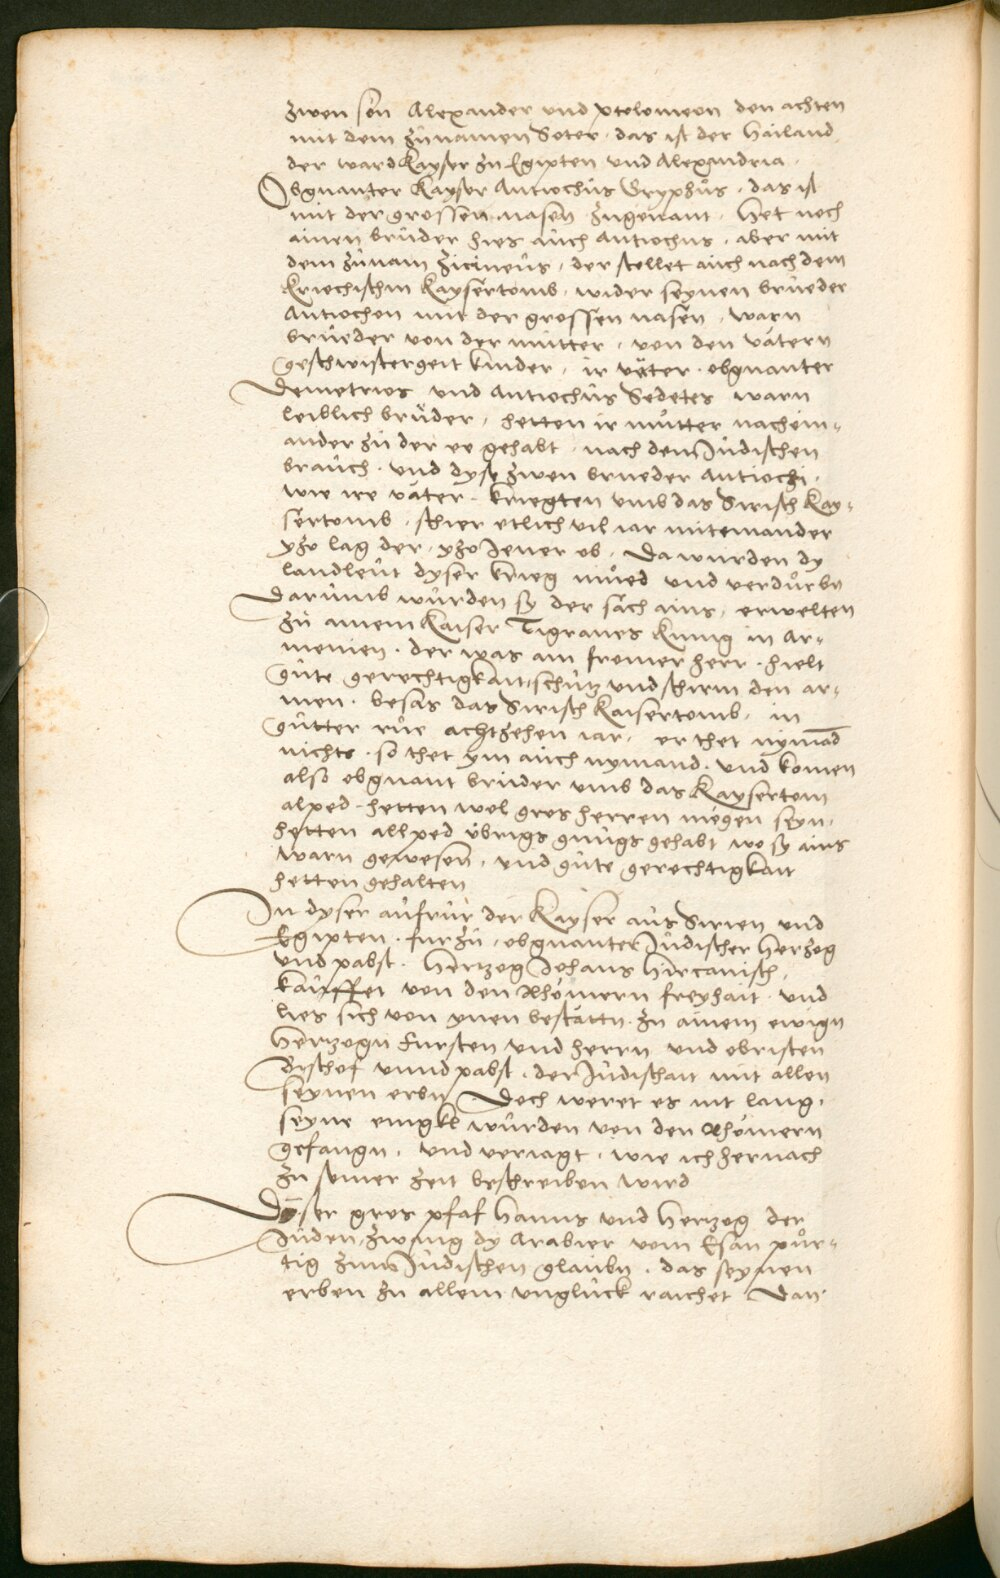 zwen sön Alexander und ptolomeon den achten
mit dem zůnamen Soter · das ist der Hailand
der ward Kayser zu Egipten und Alexandria ·
Obgnanter Kayser Antiochůs Gryphůs · das ist
mit der grossen nasen zugenant · Het noch
ainen brůder hies aůch Antiochus · aber mit
dem zůnam Zizineůs · der stellet auch nach dem
Kriechischm Kaysertomb · wider seynen brůeder
Antiochen mit der grossen nasen · warn
brůeder von der můtter · von den vätern
geschwistergeit kinder · ir väter · obgnanter
Demetrios und Antiochůs Sedetes warn
leiblich brůder · hetten ir můtter nachein-
ander zů der ee gehabt · nach dem Jůdischen
braůch · und dyse zwen brueder Antiochi ·
wie ire väter · kriegten umb das Sirisch Kay-
sertomb · schier etlich vil iar miteinander
yzo lag der · yzo Jener ob · Da wurden dy
landleůt dyser krieg můed und verdůrbn
Darůmb wůrden sy der sach ains · erwelten
zů ainem Kaiser Tigranes Kunig in Ar-
menien · der was ain fromer herr · hielt
gůte gerechtigkait · schůtz und schirm den ar-
men · besas das Sirisch Kaisertomb · in
gůtter růe achtzehen iar · er thet nymād
nichts · so thet ym auch nymand · und komen
also obgnant brůder umb das Kaysertom
alped · hetten wol gros herren megen seyn ·
hetten allped übrigs gnůgs gehabt wo sy ains
warn gewesen · und gůte gerechtigkait
hetten gehalten
In dyser aůfrůr der Kayser aůs Sirien und
Egipten · fur zů · obgnanter Jůdischer Herzog
und pabst · Hertzog Johans Hircanisch ·
kaůffet von den Rhömern freyhait · und
lies sich von ynen bestättn · zu ainem ewign
Hertzogn Fursten und herrn und obristen
Bischof unnd pabst · der Jůdischait mit allen
seynen erbn Doch weret es nit lang ·
seyne enigkl wůrden von den Rhömern
gefangn · und veriagt · wie ich hernach
zu seiner zeit beschreiben wird
Dÿser gros pfaf Hanns und Hertzog der
Jůden · zwang dy Arabier vom Esau půr-
tig zum Jůdischen glaubn · das seynen
erben zu allem unglůck raichet Dan